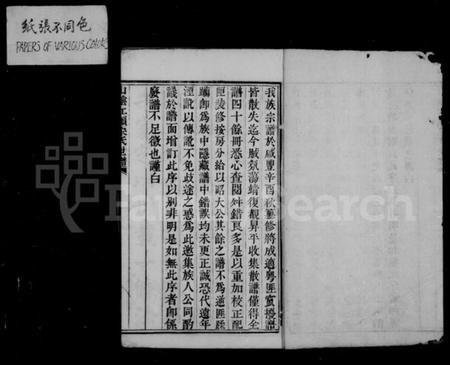 紙張不同色
PAPERS OF VARIOUS COLORS
我族宗譜於咸豐辛酉秋纂修將成適粵匪竄擾譜
皆散失迄今賊氛蕩靖復覩昇平收集散譜僅得全
譜四十餘冊悉心查閱舛錯良多是以重加校正配
訂裝修按房分給以昭大公其餘之譜不為遺匪蹂
躪卽為族中隱藏譜中錯誤均未更正誠恐代遠年
湮訛以傳訛不免歧途之惑為此邀集族人公同酌
議於譜面增訂此序以別非明是如無此序者卽係
廢譜不足徵也謹白
山陰江頭宋氏世譜